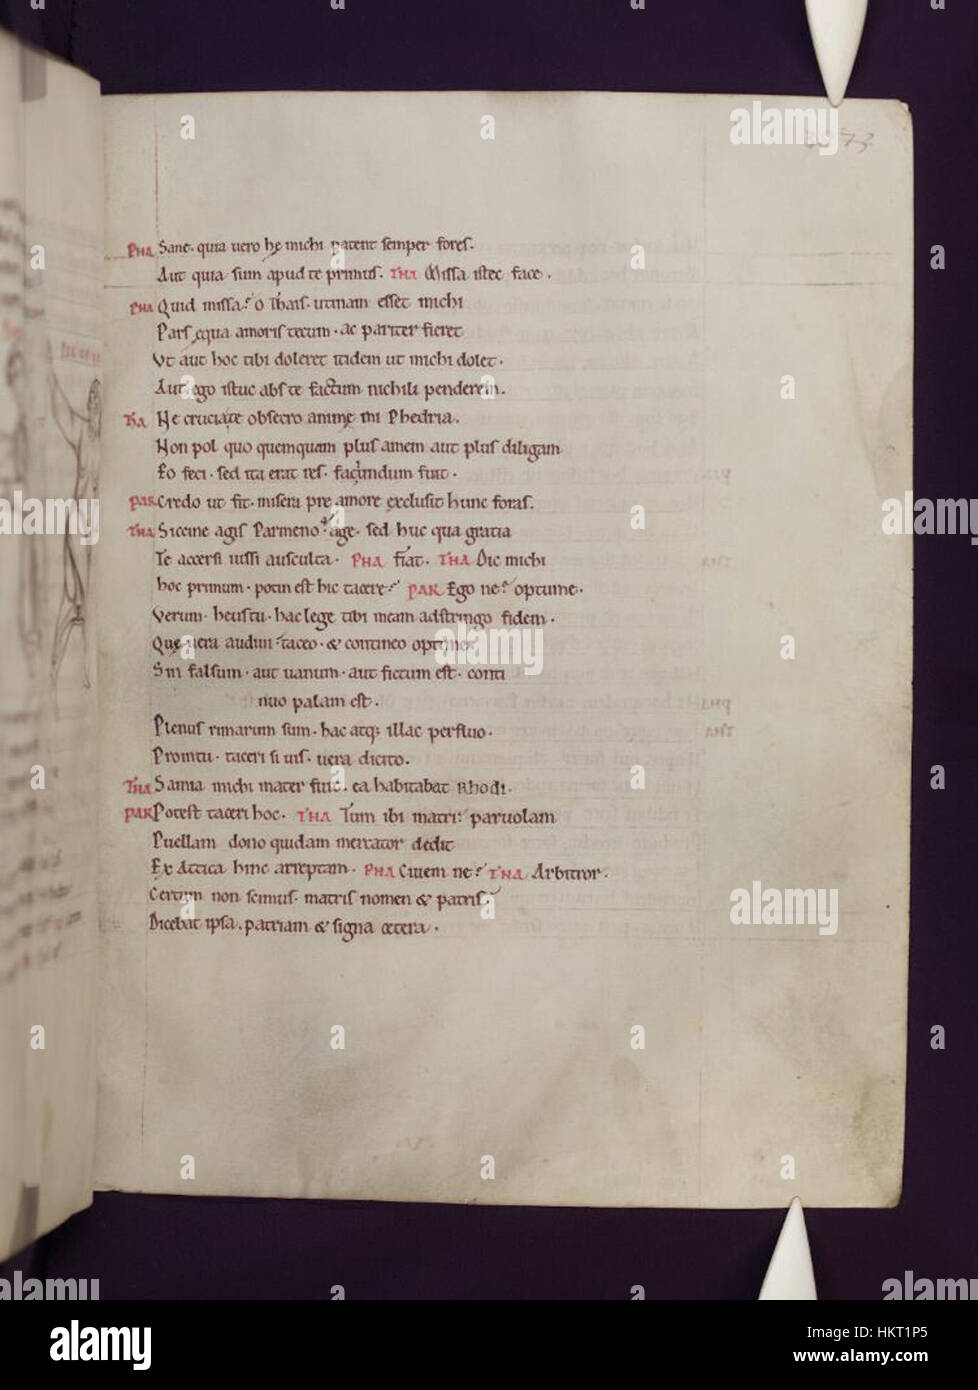 73
PHA Sane. quia uero hę michi patent semper fores.
Aut quia sum apud te primus. THA Missa istec face.
PHA Quid missa? o Thais. utinam esset michi
Pars equa amoris tecum. ac pariter fieret
Ut aut hoc tibi doleret itidem ut michi dolet.
Aut ego istuc abs te factum nichili penderem.
THA Ne crucia te obsecro anime mi Phedria.
Non pol quo quemquam plus amem aut plus diligam
Eo feci. sed ita erat res. faciundum fuit.
PAR Credo ut fit. misera pre amore exclusit hunc foras.
THA Siccine agis Parmeno? age. sed huc qua gratia
Te accersi iussi ausculta. PHA Fiat. THA Dic michi
hoc primum. potin est hic tacere? PAR Ego ne? optume.
Verum heus tu. hac lege tibi meam adstringo fidem.
Quę uera audiui taceo. & contineo optime.
Sin falsum. aut uanum. aut fictum est. conti
nuo palam est.
Plenus rimarum sum. hac atq; illac perfluo.
Proin tu. taceri si uis. uera dicito.
THA Samia michi mater fuit. ea habitabat Rhodi.
PAR Potest taceri hoc. THA Tum ibi matri paruolam
Puellam dono quidam mercator dedit
Ex Attica hinc arreptam. PHA Ciuem ne? THA Arbitror.
Certum non scimus. matris nomen & patris
Dicebat ipsa. patriam & signa cetera.
alamy
Image ID: HKT1P5
www.alamy.com